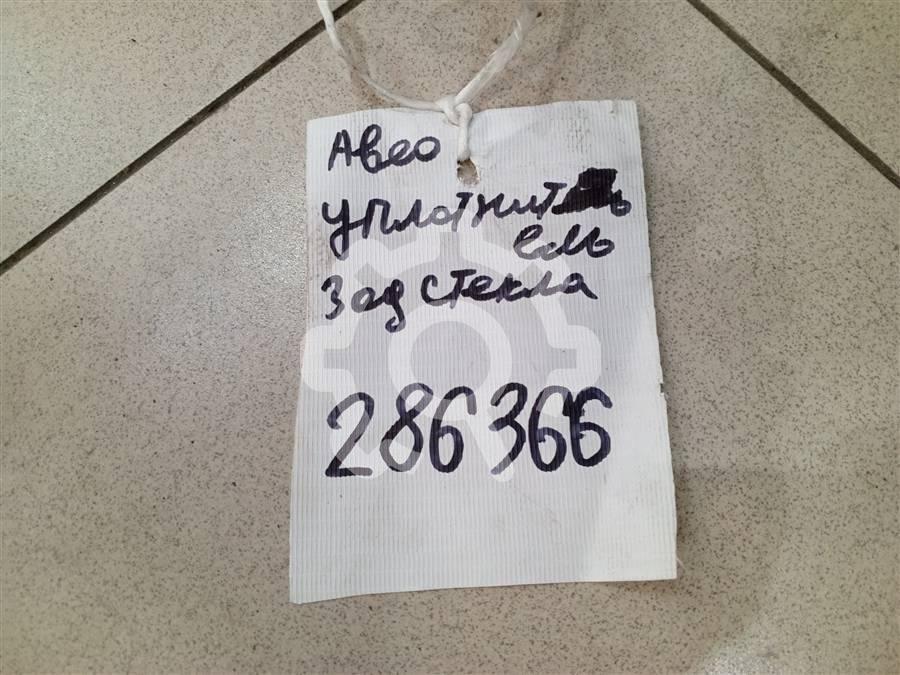 Авео
уплотнитель
ель
Зад стекла
286366